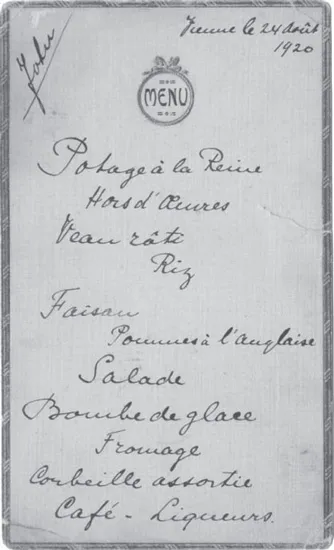 John
Vienne le 24 août
1920
MENU
Potage à la Reine
Hors d'Œuvres
Veau rôti
Riz
Faisan
Pommes à l'anglaise
Salade
Bombe de glace
Fromage
Corbeille assortie
Café - Liqueurs.